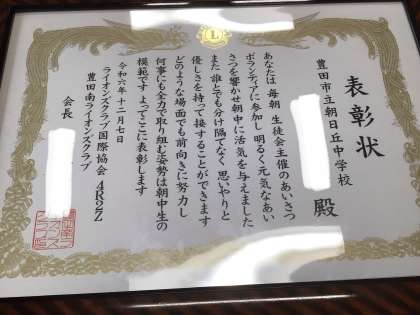 表彰状
豊田市立朝日丘中学校
殿
あなたは 毎朝 生徒会主催のあいさつ
ボランティアに参加し 明るく元気なあい
さつを響かせ朝中に活気を与えました
また 誰とでも分け隔てなく 思いやりと
優しさを持って接することができます
どのような場面でも前向きに努力し
何事にも全力で取り組む姿勢は朝中生の
模範です よってここに表彰します
令和六年十二月七日
ライオンズクラブ国際協会 4R2Z
豊田南ライオンズクラブ
会長